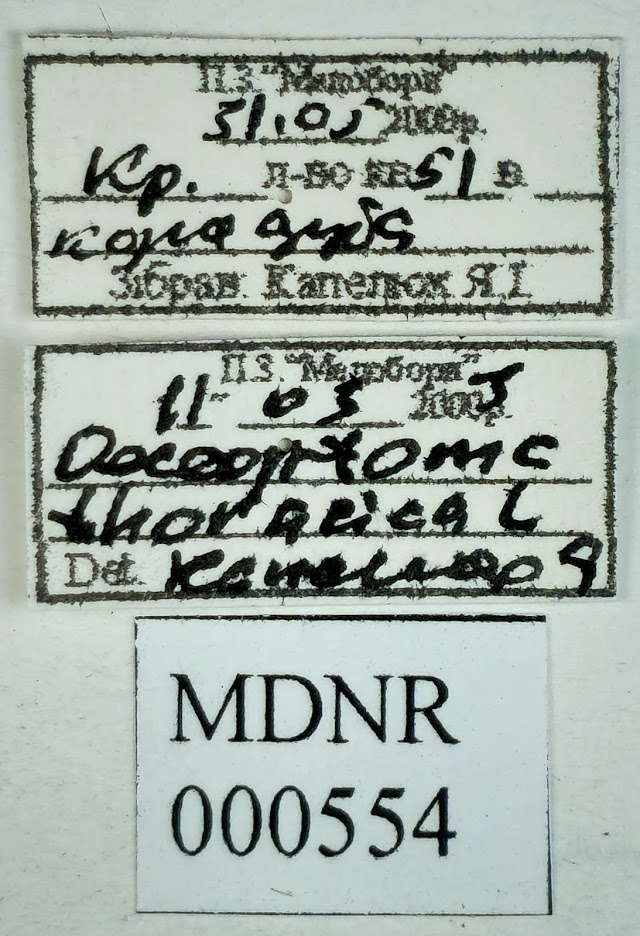 П.З. "Медобори"
31.05 2000р.
Кр. л-во кв 51 в.
кора дуба
Зібрав. Капелюх Я.І.
П.З. "Медобори"
11 03 2003р.
thoracica L
Det. Капелюх Я
MDNR
000554